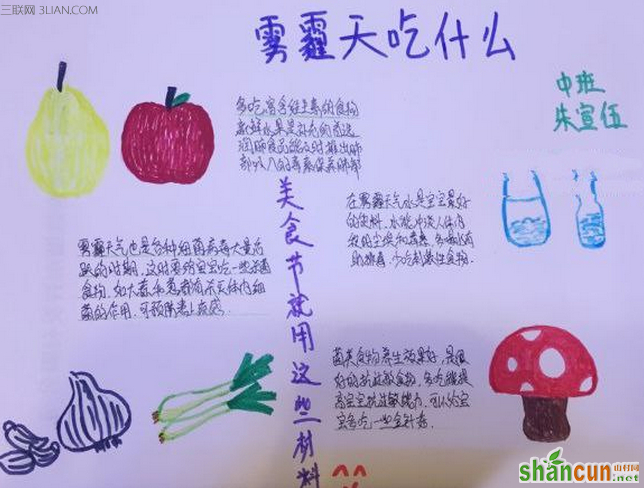 三联网 3LIAN.COM
雾霾天吃什么
中班
朱宣伍
多吃富含维生素的食物
新鲜水果是补充的首选
润肺食品能及时推出肺
部吸入的毒素保养肺部
美食节就用这些材料
在雾霾天气水是宝宝最好
的饮料，水能冲淡人体内
的尘埃和毒素，
助排毒，少吃刺激性食物.
雾霾天气也是各种细菌病毒大量活
跃的时期，这时要给宝宝吃一些杀菌
食物，如大蒜和葱都有杀灭体内细
菌的作用，可预防患上疾病.
菌类食物养生效果好，是很
好的抗过敏食物，多吃能提
高宝宝抗过敏能力，可以给宝
宝多吃一些金针菇.
shancun
山村网
.net